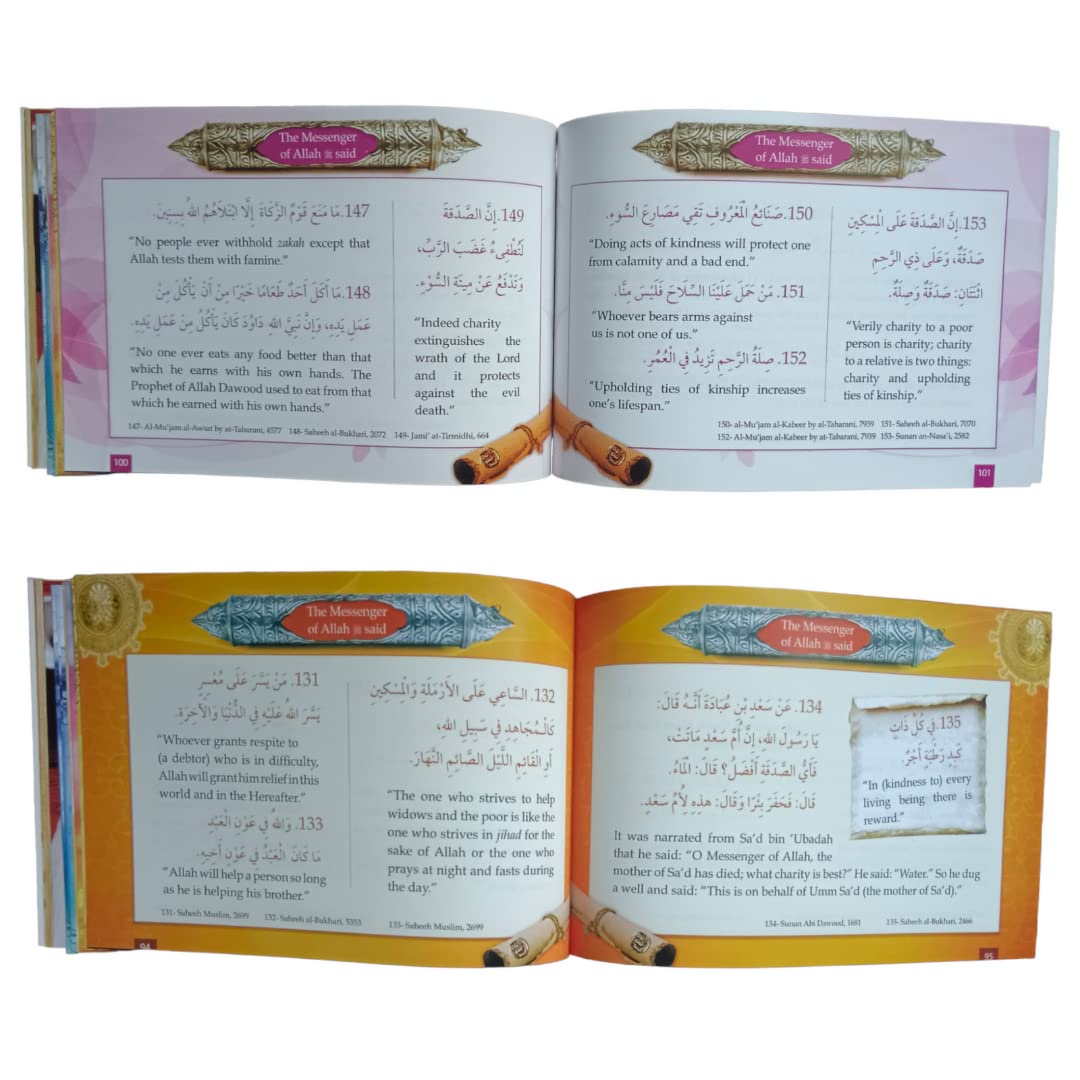 The Messenger
of Allah ﷺ said
147. مَا مَنَعَ قَوْمٌ الزَّكَاةَ إِلَّا ابْتَلَاهُمُ اللهُ بِسِنِينَ.
"No people ever withhold zakah except that
Allah tests them with famine."
148. مَا أَكَلَ أَحَدٌ طَعَامًا خَيْرًا مِنْ أَنْ يَأْكُلَ مِنْ
عَمَلِ يَدِهِ، وَإِنَّ نَبِيَّ اللهِ دَاوُدَ كَانَ يَأْكُلُ مِنْ عَمَلِ يَدِهِ.
"No one ever eats any food better than that
which he earns with his own hands. The
Prophet of Allah Dawood used to eat from that
which he earned with his own hands."
149. إِنَّ الصَّدَقَةَ
لَتُطْفِىءُ غَضَبَ الرَّبِّ،
وَتَدْفَعُ عَنْ مِيتَةِ السُّوْءِ.
"Indeed charity
extinguishes the
wrath of the Lord
and it protects
against the evil
death."
147- Al-Mu'jam al-Awsat by at-Tabarani, 4577 148- Saheeh al-Bukhari, 2072 149- Jami' at-Tirmidhi, 664
100
The Messenger
of Allah ﷺ said
150. صَنَائِعُ الْمَعْرُوفِ تَقِي مَصَارِعَ السُّوءِ.
"Doing acts of kindness will protect one
from calamity and a bad end."
151. مَنْ حَمَلَ عَلَيْنَا السِّلَاحَ فَلَيْسَ مِنَّا.
"Whoever bears arms against
us is not one of us."
152. صِلَةُ الرَّحِمِ تَزِيدُ فِي الْعُمُرِ.
"Upholding ties of kinship increases
one's lifespan."
153. إِنَّ الصَّدَقَةَ عَلَى الْمِسْكِينِ
صَدَقَةٌ، وَعَلَى ذِي الرَّحِمِ
اثْنَتَانِ: صَدَقَةٌ وَصِلَةٌ.
"Verily charity to a poor
person is charity; charity
to a relative is two things:
charity and upholding
ties of kinship."
150- al-Mu'jam al-Kabeer by al-Tabarani, 7939 151- Saheeh al-Bukhari, 7070
152- Al-Mu'jam al-Kabeer by at-Tabarani, 7939 153- Sunan an-Nasa'i, 2582
101
The Messenger
of Allah ﷺ said
131. مَنْ يَسَّرَ عَلَى مُعْسِرٍ
يَسَّرَ اللهُ عَلَيْهِ فِي الدُّنْيَا وَالْآخِرَةِ.
"Whoever grants respite to
(a debtor) who is in difficulty,
Allah will grant him relief in this
world and in the Hereafter."
133. وَاللهُ فِي عَوْنِ الْعَبْدِ
مَا كَانَ الْعَبْدُ فِي عَوْنِ أَخِيهِ.
"Allah will help a person so long
as he is helping his brother."
132. السَّاعِي عَلَى الأَرْمَلَةِ وَالْمِسْكِينِ
كَالْمُجَاهِدِ فِي سَبِيلِ اللهِ،
أَوِ الْقَائِمِ اللَّيْلَ الصَّائِمِ النَّهَارَ.
"The one who strives to help
widows and the poor is like the
one who strives in jihad for the
sake of Allah or the one who
prays at night and fasts during
the day."
131- Saheeh Muslim, 2699 132- Saheeh al-Bukhari, 5353 133- Saheeh Muslim, 2699
94
The Messenger
of Allah ﷺ said
134. عَنْ سَعْدِ بْنِ عُبَادَةَ أَنَّهُ قَالَ:
يَا رَسُولَ اللهِ، إِنَّ أُمَّ سَعْدٍ مَاتَتْ،
فَأَيُّ الصَّدَقَةِ أَفْضَلُ؟ قَالَ: الْمَاءُ.
قَالَ: فَحَفَرَ بِئْرًا وَقَالَ: هٰذِهِ لِأُمِّ سَعْدٍ.
It was narrated from Sa'd bin 'Ubadah
that he said: "O Messenger of Allah, the
mother of Sa'd has died; what charity is best?" He said: "Water." So he dug
a well and said: "This is on behalf of Umm Sa'd (the mother of Sa'd)."
135. فِي كُلِّ ذَاتِ
كَبِدٍ رَطْبَةٍ أَجْرٌ.
"In (kindness to) every
living being there is
reward."
134- Sunan Abi Dawood, 1681 135- Saheeh al-Bukhari, 2466
95